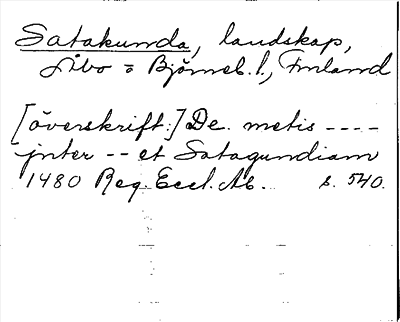 Satakunda, landskap,
Åbo o Björneb. l., Finland
[överskrift:] De metis ----
inter -- et Satagundiam
1480 Reg. Eccl. Ab. s. 540.